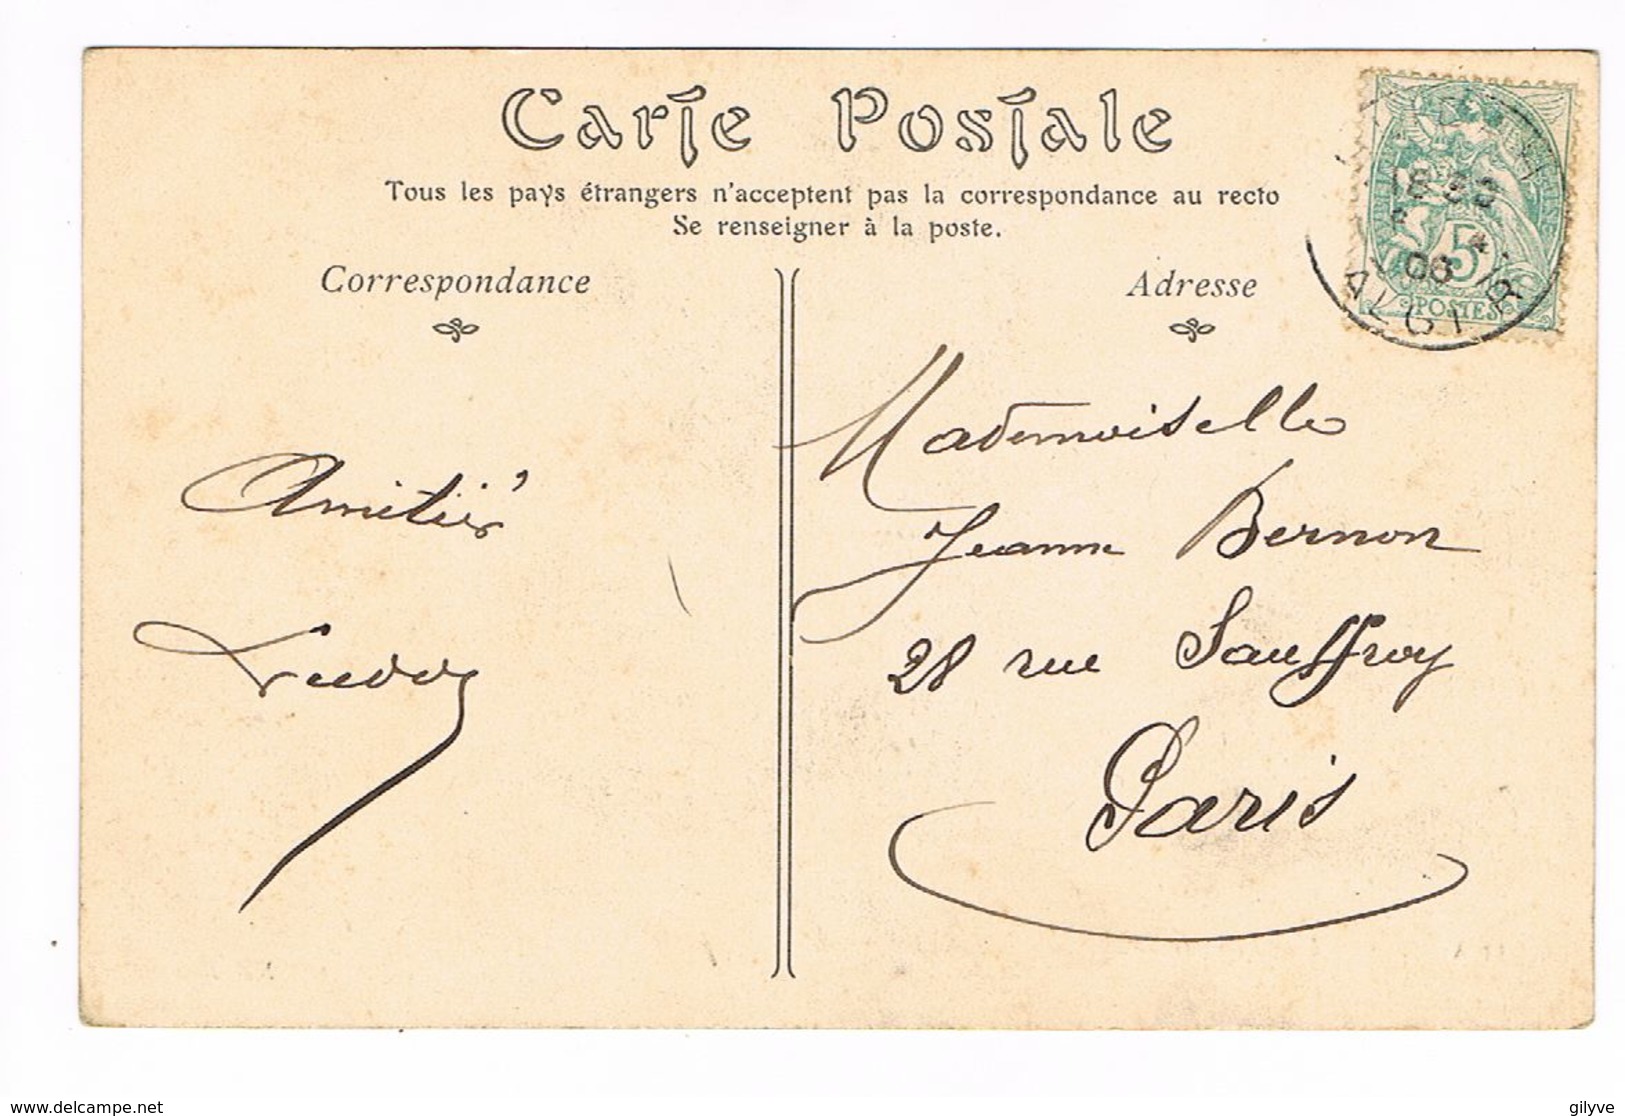 Carte Postale
Tous les pays étrangers n'acceptent pas la correspondance au recto
Se renseigner à la poste.
Correspondance
Adresse
5
POSTES
06
ALGER
Mademoiselle
Amitiés
Jeanne Bernon
28 rue Sauffroy
Paris
www.delcampe.net
gilyve